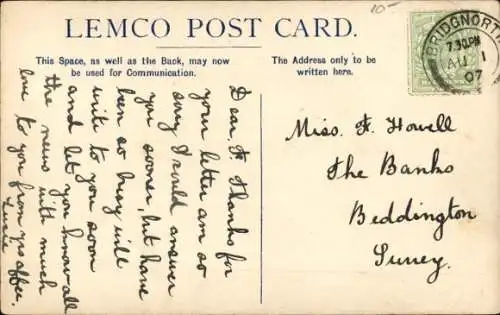 10-
LEMCO POST CARD.
This Space, as well as the Back, may now
be used for Communication.
The Address only to be
written here.
BRIDGNORTH
7.30PM
AU 1
07
Dear F. Thanks for
your letter am so
sorry I could answer
you sooner, but have
been so busy will
write to you soon
and let you know all
the news with much
love to you from yrs affec.
Miss. F. Howell
The Banks
Beddington
Surrey.